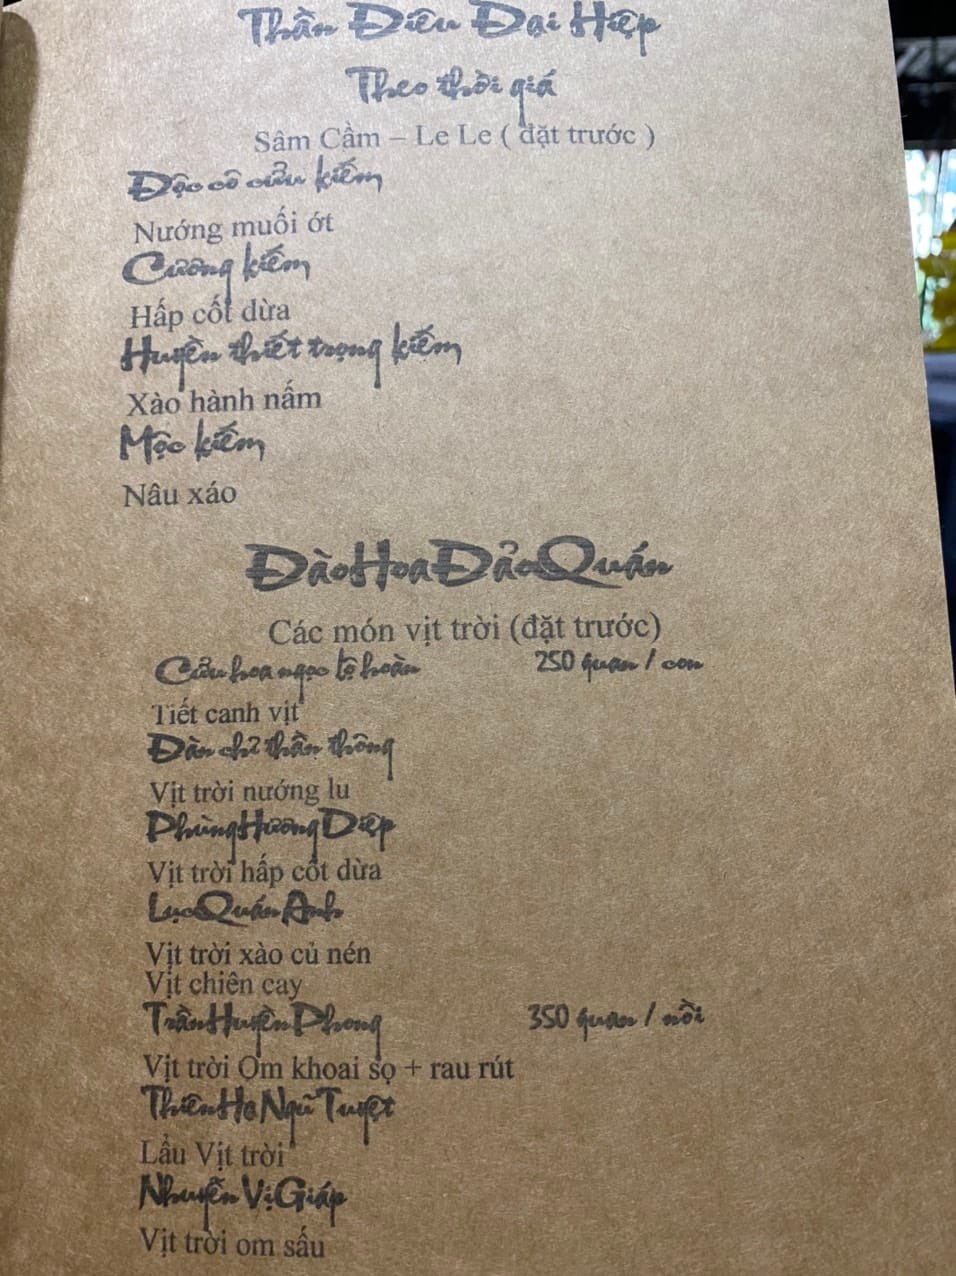 Thần Điêu Đại Hiệp
Theo thời giá
Sâm Cầm – Le Le ( đặt trước )
Độc cô cửu kiếm
Nướng muối ớt
Cương kiếm
Hấp cốt dừa
Huyền thiết trọng kiếm
Xào hành nấm
Mộc kiếm
Nâu xáo
Đào Hoa Đảo Quán
Các món vịt trời (đặt trước)
Cửu hoa ngọc lộ hoàn 250 quan / con
Tiết canh vịt
Đàn chỉ thần thông
Vịt trời nướng lu
Phùng Hương Diệp
Vịt trời hấp cốt dừa
Lục Quán Anh
Vịt trời xào củ nén
Vịt chiên cay
Trần Huyền Phong 350 quan / nồi
Vịt trời Om khoai sọ + rau rút
Thiên Hạ Ngũ Tuyệt
Lẩu Vịt trời
Nhuyễn Vị Giáp
Vịt trời om sấu